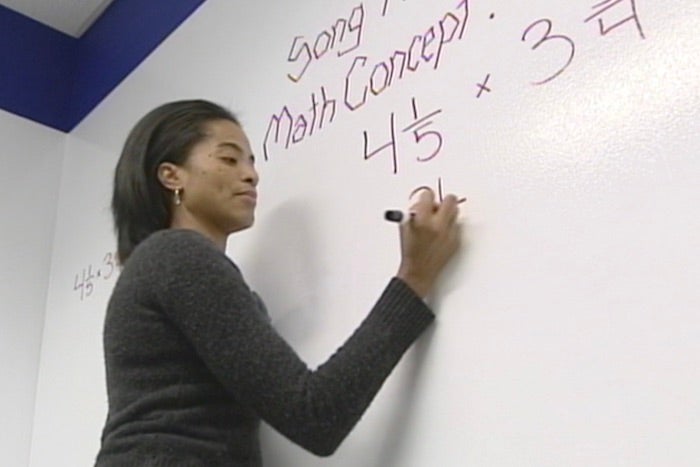 Song
Math Concept.
4 1/5 × 3 /4
4 1/5 × 3